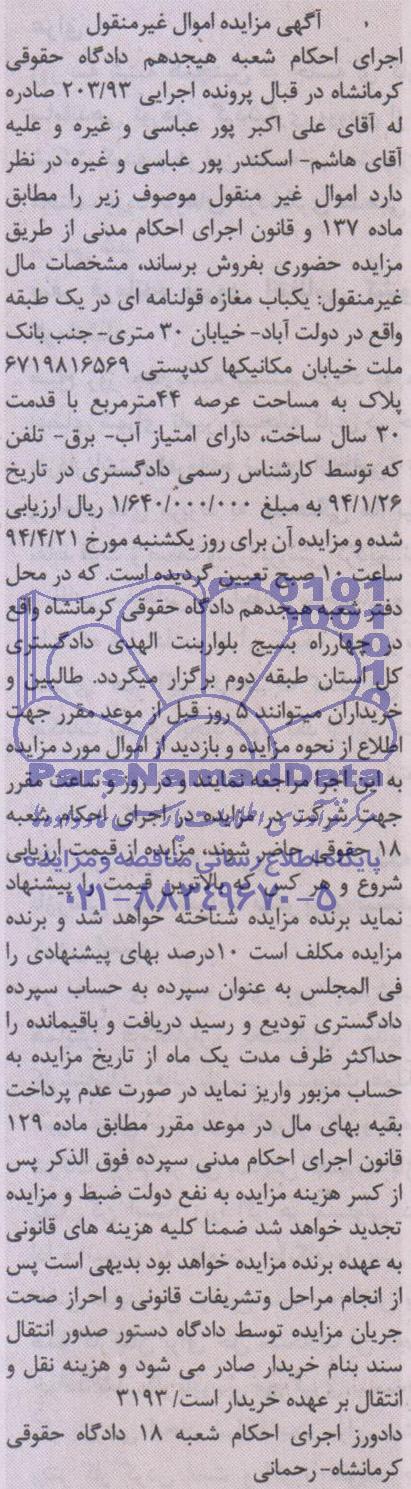 آگهی مزایده اموال غیرمنقول
اجرای احکام شعبه هیجدهم دادگاه حقوقی
کرمانشاه در قبال پرونده اجرایی ۲۰۳/۹۳ صادره
له آقای علی اکبر پور عباسی و غیره و علیه
آقای هاشم- اسکندر پور عباسی و غیره در نظر
دارد اموال غیر منقول موصوف زیر را مطابق
ماده ۱۳۷ و قانون اجرای احکام مدنی از طریق
مزایده حضوری بفروش برساند، مشخصات مال
غیرمنقول: یکباب مغازه قولنامه ای در یک طبقه
واقع در دولت آباد- خیابان ۳۰ متری- جنب بانک
ملت خیابان مکانیکها کدپستی ۶۷۱۹۸۱۶۵۶۹
پلاک به مساحت عرصه ۴۴مترمربع با قدمت
۳۰ سال ساخت، دارای امتیاز آب- برق- تلفن
که توسط کارشناس رسمی دادگستری در تاریخ
۹۴/۱/۲۶ به مبلغ ۱/۶۴۰/۰۰۰/۰۰۰ ریال ارزیابی
شده و مزایده آن برای روز یکشنبه مورخ ۹۴/۴/۲۱
ساعت ۱۰ صبح تعیین گردیده است. که در محل
دفتر شعبه هیجدهم دادگاه حقوقی کرمانشاه واقع
در چهارراه بسیج بلواربنت الهدی دادگستری
کل استان طبقه دوم برگزار میگردد. طالبین و
خریداران میتوانند ۵ روز قبل از موعد مقرر جهت
اطلاع از نحوه مزایده و بازدید از اموال مورد مزایده
به این اجرا مراجعه نمایند و در روز و ساعت مقرر
جهت شرکت در مزایده در اجرای احکام شعبه
۱۸ حقوقی حاضر شوند، مزایده از قیمت ارزیابی
شروع و هر کس که بالاترین قیمت را پیشنهاد
نماید برنده مزایده شناخته خواهد شد و برنده
مزایده مکلف است ۱۰درصد بهای پیشنهادی را
فی المجلس به عنوان سپرده به حساب سپرده
دادگستری تودیع و رسید دریافت و باقیمانده را
حداکثر ظرف مدت یک ماه از تاریخ مزایده به
حساب مزبور واریز نماید در صورت عدم پرداخت
بقیه بهای مال در موعد مقرر مطابق ماده ۱۲۹
قانون اجرای احکام مدنی سپرده فوق الذکر پس
از کسر هزینه مزایده به نفع دولت ضبط و مزایده
تجدید خواهد شد ضمنا کلیه هزینه های قانونی
به عهده برنده مزایده خواهد بود بدیهی است پس
از انجام مراحل وتشریفات قانونی و احراز صحت
جریان مزایده توسط دادگاه دستور صدور انتقال
سند بنام خریدار صادر می شود و هزینه نقل و
انتقال بر عهده خریدار است/ ۳۱۹۳
دادورز اجرای احکام شعبه ۱۸ دادگاه حقوقی
کرمانشاه- رحمانی
ParsNamadData
پایگاه اطلاع رسانی مناقصه و مزایده
۰۲۱-۸۸۳۴۹۶۷۰-۵